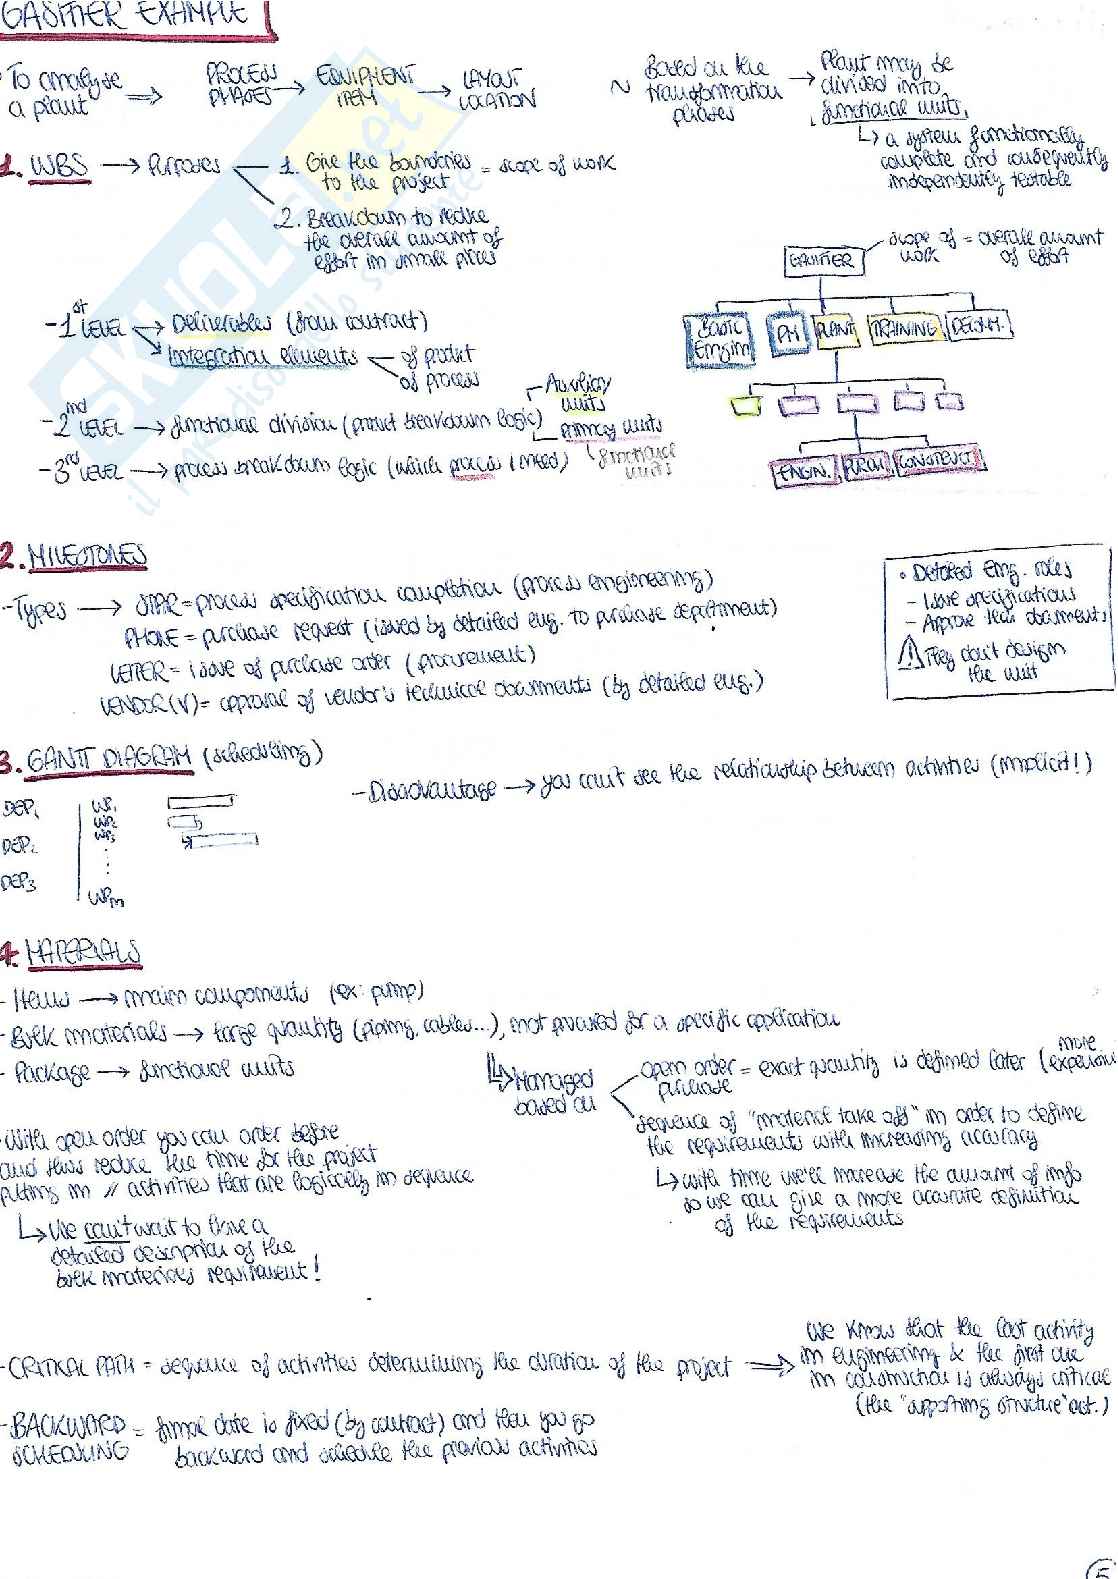 GASIFIER EXAMPLE
- To analyse a plant ⟹ PROCESS PHASES → EQUIPMENT ITEM → LAYOUT LOCATION ~ Based on the transformation phases → Plant may be divided into functional units
↳ a system functionally complete and consequently independently testable
1. WBS → Purposes
1. Give the boundaries to the project = scope of work
2. Breakdown to reduce the overall amount of effort in small pieces
- 1st LEVEL → Deliverables (from contract)
→ Integration elements
of product
of process
- 2nd LEVEL → functional division (product breakdown logic)
Auxiliary units
primary units
functional units
- 3rd LEVEL → process breakdown logic (which process I need)
GASIFIER
scope of work = overall amount of effort
BASIC Engin
PM
PLANT
TRAINING
ENGIN.
PURCH
CONSTRUCT
2. MILESTONES
- Types → STAR = process specification completion (process engineering)
PHONE = purchase request (issued by detailed eng. to purchase department)
LETTER = issue of purchase order (procurement)
VENDOR (V) = approval of vendor's technical documents (by detailed eng.)
• Detailed Eng. roles
- Issue specifications
- Approve tech documents
⚠ They don't design the unit
3. GANTT DIAGRAM (scheduling)
DEP1
DEP2
DEP3
WP1
WP2
WP3
WPm
- Disadvantage → you can't see the relationship between activities (implicit!)
4. MATERIALS
- Items → main components (ex: pump)
- Bulk materials → large quantity (piping, cables...), not procured for a specific application
- Package → functional units
↳ Managed based on
open order purchase = exact quantity is defined later (more expensive
sequence of "material take off" in order to define the requirements with increasing accuracy
↳ with time we'll increase the amount of info so we can give a more accurate definition of the requirements
- With open order you can order before
and thus reduce the time for the project
putting in // activities that are logically in sequence
↳ We can't wait to have a
detailed description of the
bulk materials requirement!
- CRITICAL PATH = sequence of activities determining the duration of the project ⟹ We know that the last activity in engineering & the first one in construction is always critical (the "supporting structure" act.)
- BACKWARD SCHEDULING = final date is fixed (by contract) and then you go backward and schedule the previous activities
5
SKUOLA.net